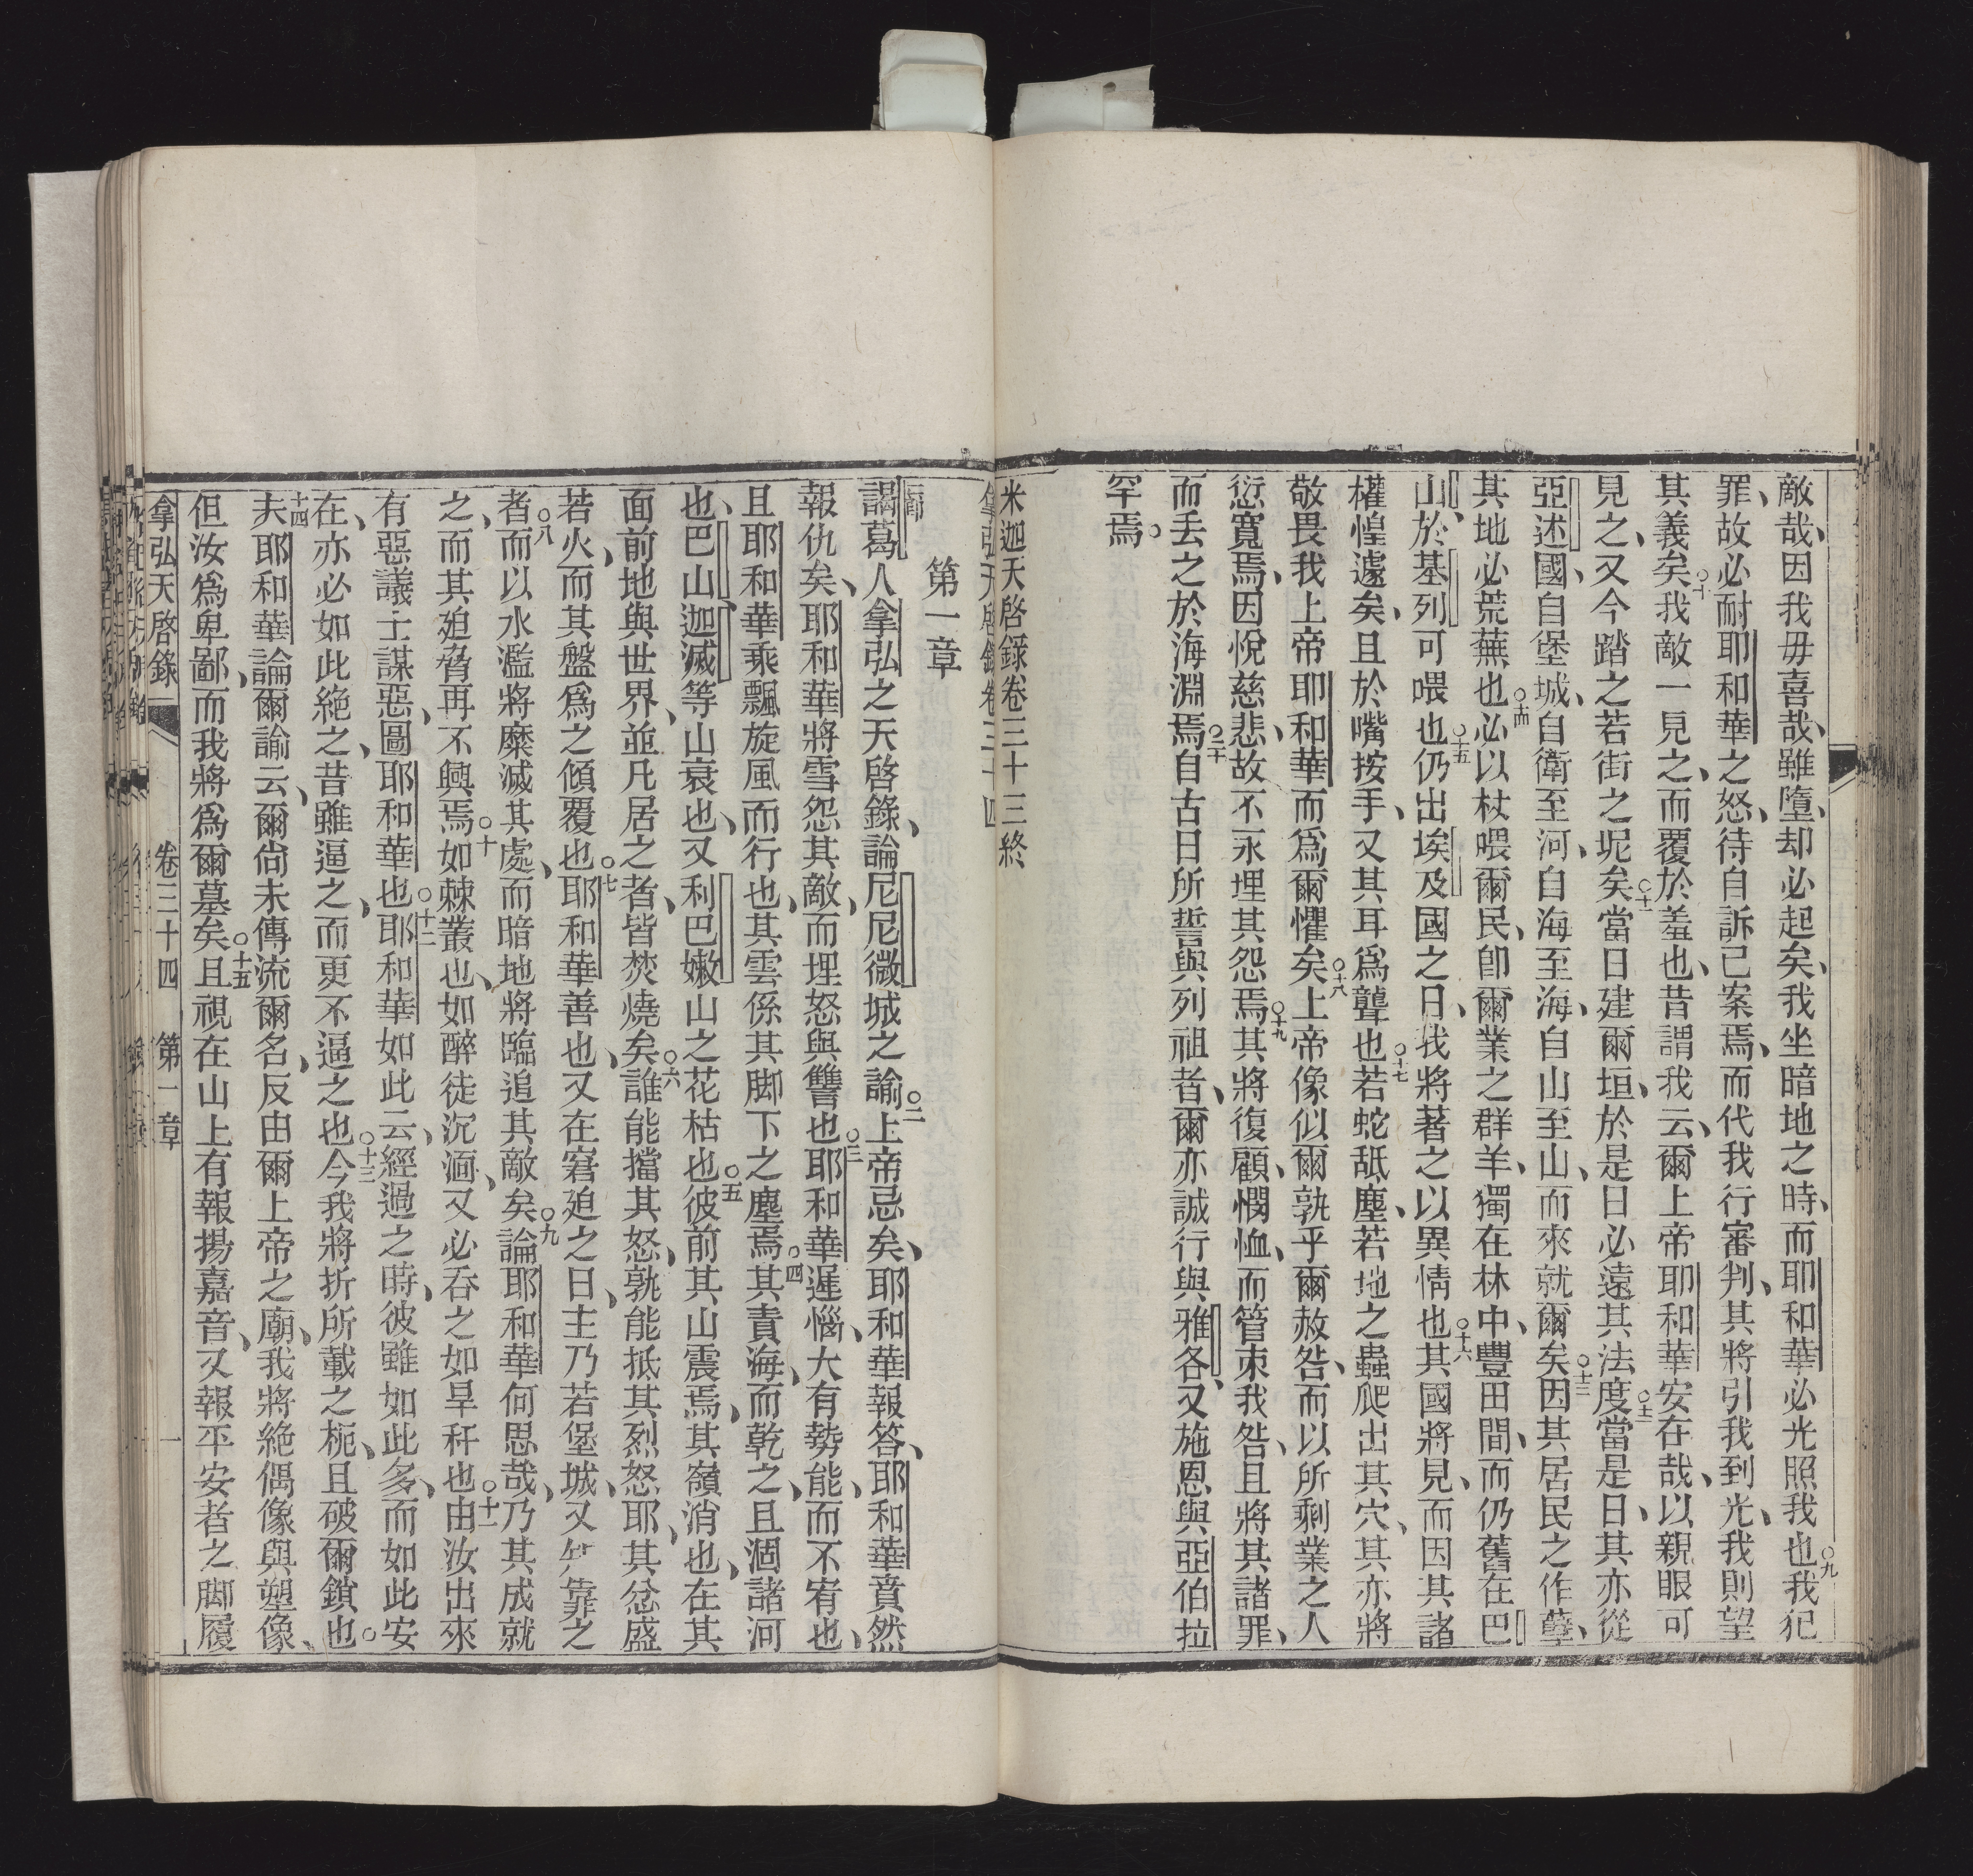 敵哉、因我毋喜哉、雖墮、却必起矣、我坐暗地之時、而耶和華必光照我也○九我犯
罪、故必耐耶和華之怒、待自訴己案焉、而代我行審判、其將引我到光、我則望
其義矣○十我敵一見之、而覆於羞也、昔謂我云、爾上帝耶和華安在哉、以親眼可
見之、又今踏之若街之坭矣○十一當日建爾垣、於是日必遠其法度○十二當是日、其亦從
亞述國、自堡城、自衛至河、自海至海、自山至山、而來就爾矣○十三因其居民之作孽、
其地必荒蕪也○十四必以杖喂爾民、卽爾業之群羊、獨在林中、豐田間、而仍舊在巴
山、於基列可喂也○十五仍出埃及國之日、我將著之以異情也○十六其國將見、而因其諸
權惶遽矣、且於嘴按手、又其耳爲聾也○十七若蛇舐塵、若地之蟲爬出其穴、其亦將
敬畏我上帝耶和華、而爲爾懼矣○十八上帝像似爾孰乎、爾赦咎、而以所剩業之人
愆寬焉、因悅慈悲、故不永埋其怨焉○十九其將復顧、憫恤、而管束我咎、且將其諸罪、
而丟之於海淵焉○二十自古日所誓與列祖者、爾亦誠行與雅各、又施恩與亞伯拉
罕焉。
米迦天啓錄卷三十三終
拿弘天啓錄卷三十四
第一章
謁葛人拿弘之天啓錄、論尼尼微城之諭○二上帝忌矣、耶和華報答、耶和華賁然
報仇矣、耶和華將雪怨其敵、而埋怒與讐也○三耶和華遲惱、大有勢能、而不宥也、
且耶和華乘飄旋風而行也、其雲係其脚下之塵焉○四其責海、而乾之、且涸諸河
也、巴山、迦滅等山衰也、又利巴嫩山之花枯也○五彼前其山震焉、其嶺消也、在其
面前地與世界、並凡居之者、皆焚燒矣○六誰能擋其怒、孰能抵其烈怒耶、其忿盛
若火、而其盤爲之傾覆也○七耶和華善也、又在窘廹之日、主乃若堡城、又知靠之
者○八而以水濫將糜滅其處、而暗地將臨追其敵矣○九論耶和華何思哉、乃其成就
之、而其廹脅再不興焉○十如棘叢也、如醉徒沉湎、又必吞之如旱秆也○十一由汝出來
有惡議士、謀惡、圖耶和華也○十二耶和華如此云、經過之時、彼雖如此多、而如此安
在、亦必如此絶之、昔雖逼之、而更不逼之也○十三今我將折所載之枙、且破爾鎖也。
十四夫耶和華論爾諭云、爾尙未傳流爾名、反由爾上帝之廟、我將絶偶像與塑像、
但汝爲卑鄙、而我將爲爾墓矣○十五且視在山上有報揚嘉音、又報平安者之脚履
拿弘天啓錄 卷三十四 第一章 一